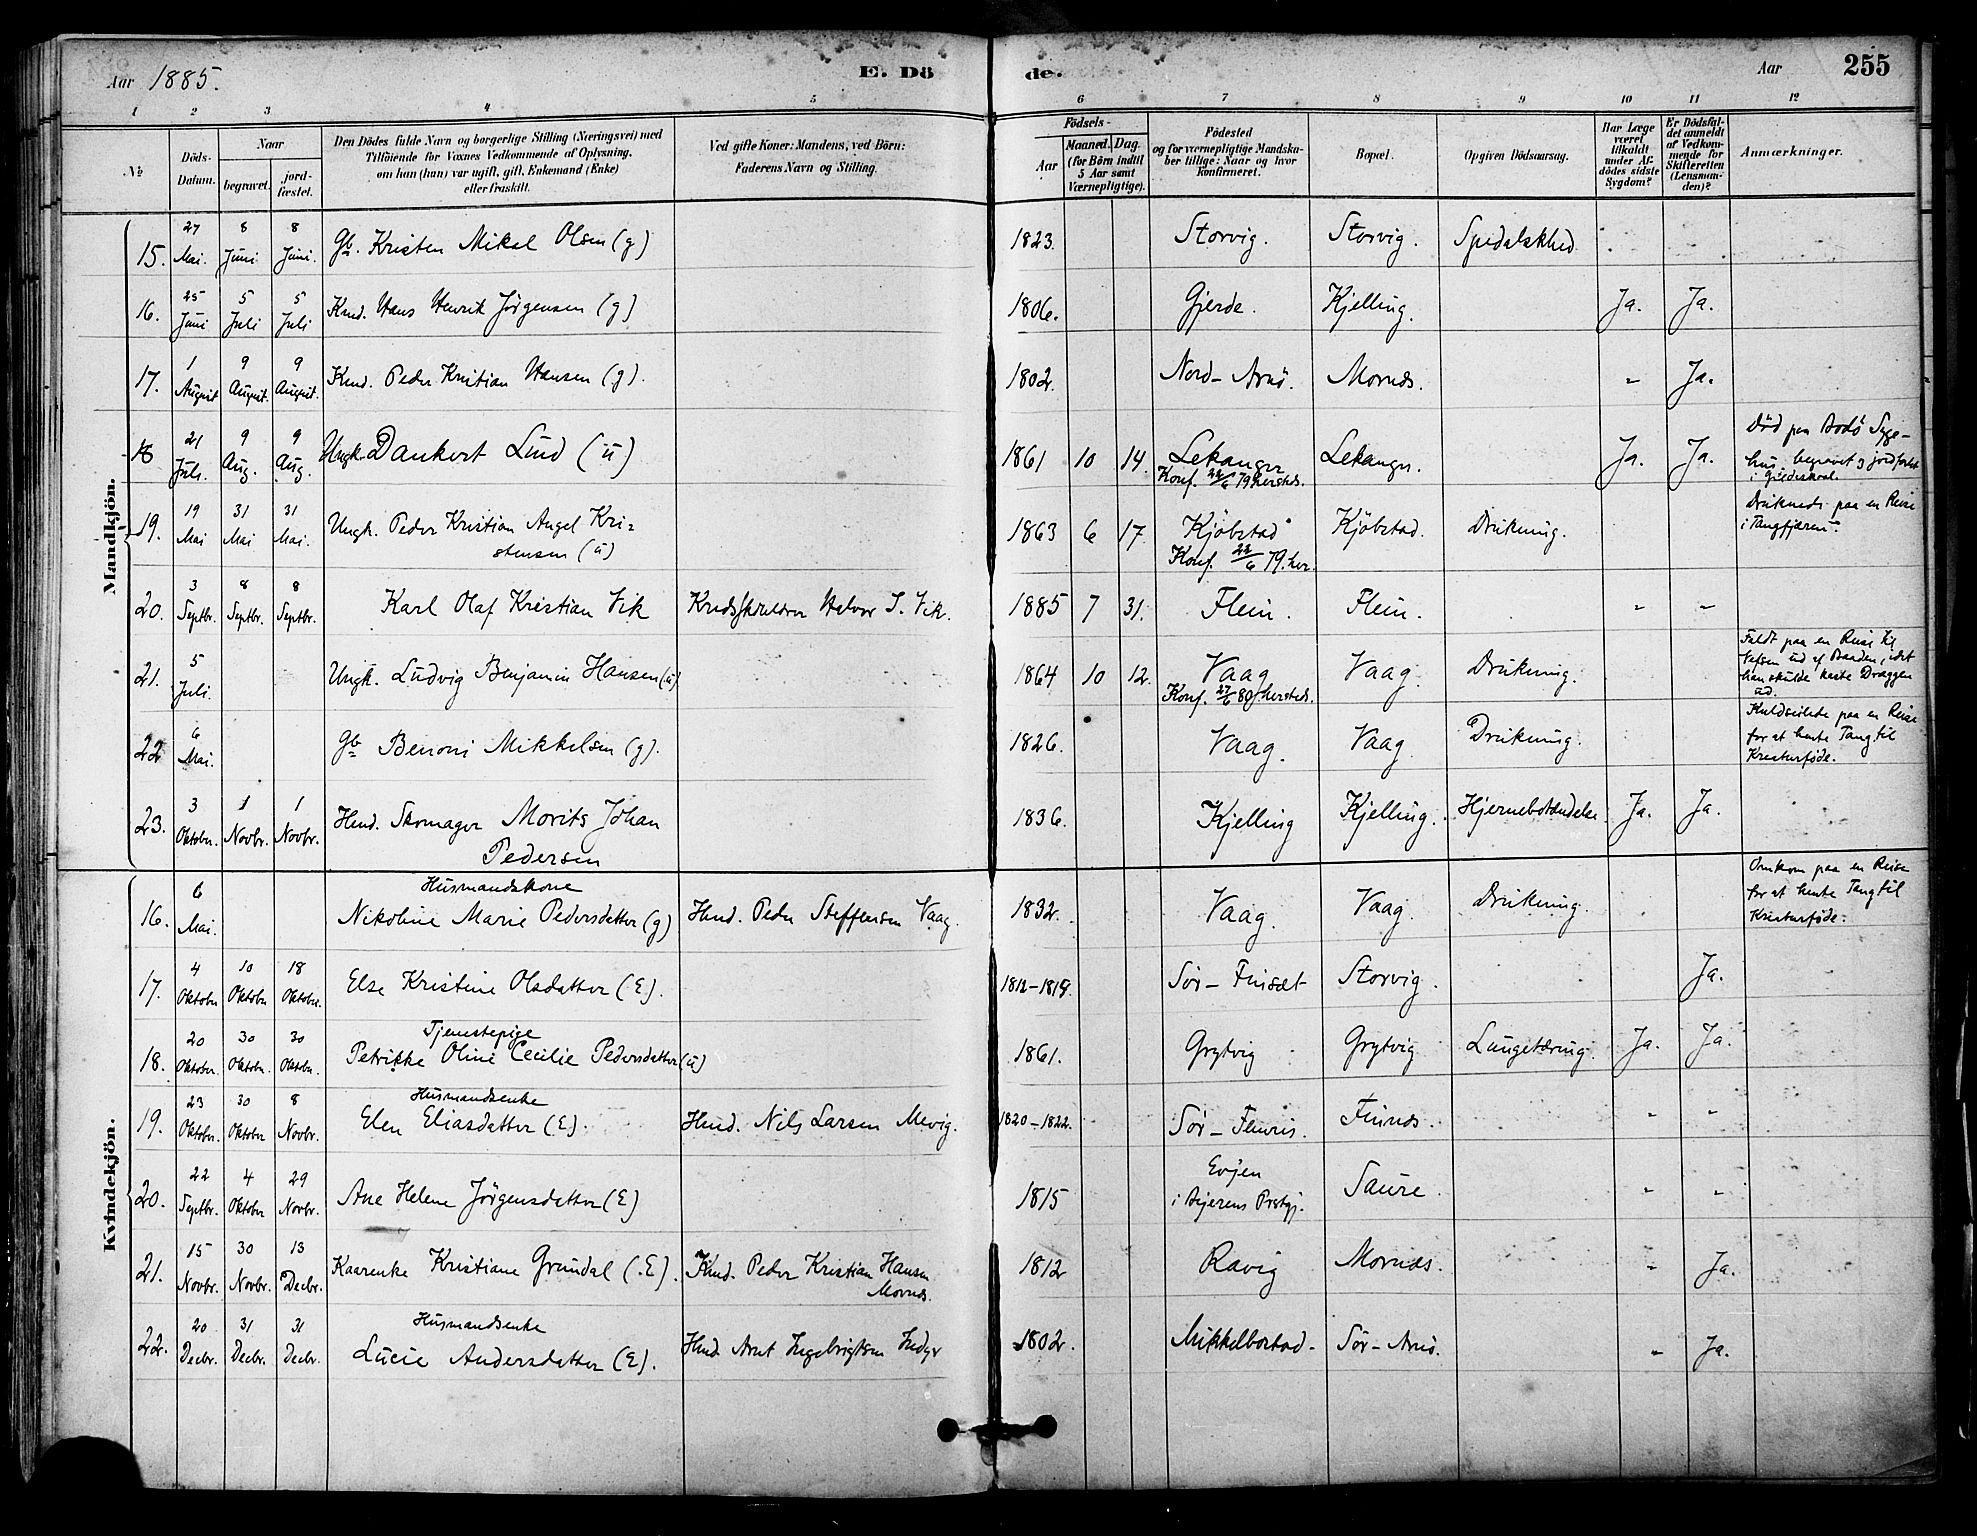 Aar 1885. E. Dö de. Aar 255
1 2 3 4 5 6 7 8 9 10 11 12
No Döds-Datum. Naar begravet. jord-fæstet. Den Dödes fulde Navn og borgerlige Stilling (Næringsvei) med Tilföiende for Voxnes Vedkommende af Oplysning, om han (hun) var ugift, gift, Enkemand (Enke) eller fraskilt. Ved gifte Koner: Mandens, ved Börn: Faderens Navn og Stilling. Födsels- Aar Maaned. Dag. (for Börn indtil 5 Aar samt Værnepligtige). Födested og for værnepligtige Mandskaber tillige: Naar og hvor konfirmeret. Bopæl. Opgiven Dödsaarsag. Har Læge været tilkaldt under Afdödes sidste Sygdom? Er Dödsfaldet anmeldt af Vedkommende for Skifteretten (Lensmanden)? Anmærkninger.
Mandkjön.
15. 27 Mai. 8 Juni 8 Juni. Gb. Kristen Mikal Olsen (g) 1823. Storvig. Storvig. Spedalskhed
16. 25 Juni 5 Juli 5 Juli Kmd. Hans Henrik Jörgensen (g) 1806. Gjerde. Kjelling. Ja. Ja.
17. 1 August 9 August. 9 August. Kmd. Peder Kristian Hansen (g). 1802. Nord-Arnö. Mornes. " Ja.
18 21 Juli. 9 Aug. 9 Aug. Ungk. Dankert Lund (u) 1861 10 14. Lekanger Konf. 22/6 79 hersteds. Lekanger. Ja. Ja. Död paa Bodö Syge-
hus, begravet og jordfæstet
i Gildeskaal.
19. 19 Mai 31 Mai 31 Mai. Ungk. Peder Kristian Angel Kri-
stensen (u) 1863 6 17. Kjöbstad Konf. 22/6 79. her. Kjöbstad. Drukning. Druknede paa en Reise
i Tangfjæren.
20. 3 Septbr. 8 Septbr. 8 Septbr. Karl Olaf Kristian Vik Kredsskolelærer Halvor I. Vik. 1885 7 31. Flein. Flein. " "
21. 5 Juli. Ungk. Ludvig Benjamin Hansen (u) 1864 10 12. Vaag Konf. 27/6 80 hersteds. Vaag. Drukning. Faldt paa en Reise til
Vefsen ud af Baaden, idet
han skulde kaste Dræggen
ud.
22 6 Mai. Gb Benoni Mikkelsen (g). 1826. Vaag. Vaag Drukning. Kuldseilede paa en Reise
for at hente Tang til
Kreaturföde.
23. 3 Oktober. 1 Novbr. 1 Novbr. Hmd. Skomager Morits Johan
Pedersen 1836. Kjelling Kjelling. Hjernebetændelse Ja. Ja.
Kvindekjön.
16. 6 Mai. Husmandskone
Nikoline Marie Pedersdatter (g) Hmd. Peder Steffensen Vaag. 1832. Vaag. Vaag. Drukning. Omkom paa en Reise
for at hente Tang til
Kreaturföde.
17. 4 Oktober 10 Oktober 18 Oktober. Else Kristine Olsdatter (E). 1812-1819. Sör-Finset Storvig. Ja.
18. 20 Oktober. 30 Oktober. 30 Oktober. Tjenestepige
Petrikke Oline Cecilie Pedersdatter (u) 1861. Grytvig Grytvig Lungetæring. Ja. Ja.
19. 23 Oktober. 30 Oktober 8 Novbr. Husmandsenke
Elen Eliasdatter (E). Hmd. Nils Larsen Mevig. 1820-1822. " "
20. 22 Septbr. 4 Oktober 29 Novbr. Ane Helene Jörgensdatter (E) 1815 Evjen
i Bejerens Prstgj. Saure. " "
21. 15 Novbr. 30 Novbr. 13 Decbr. Kaarenke Kristiane Grundal (E). Kmd. Peder Kristian Hansen
Mornes. 1812 Ravig Mornes. " Ja.
22. 20 Decbr. 31 Decbr. 31 Decbr. Husmandsenke
Lucie Andersdatter (E). Hmd. Arnt Ingebrigtsen Indyr 1802. Mikkelborstad. Sör-Arnö. " Ja.